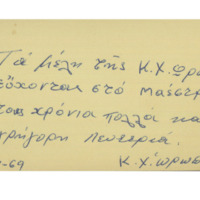 Τά μέλη τῆς Κ.Χ. Ωρω
εὔχονται στό Μαέστρ
τους χρόνια πολλά και
γρήγορη λευτεριά.
-69 Κ.Χ. Ὠρωπ